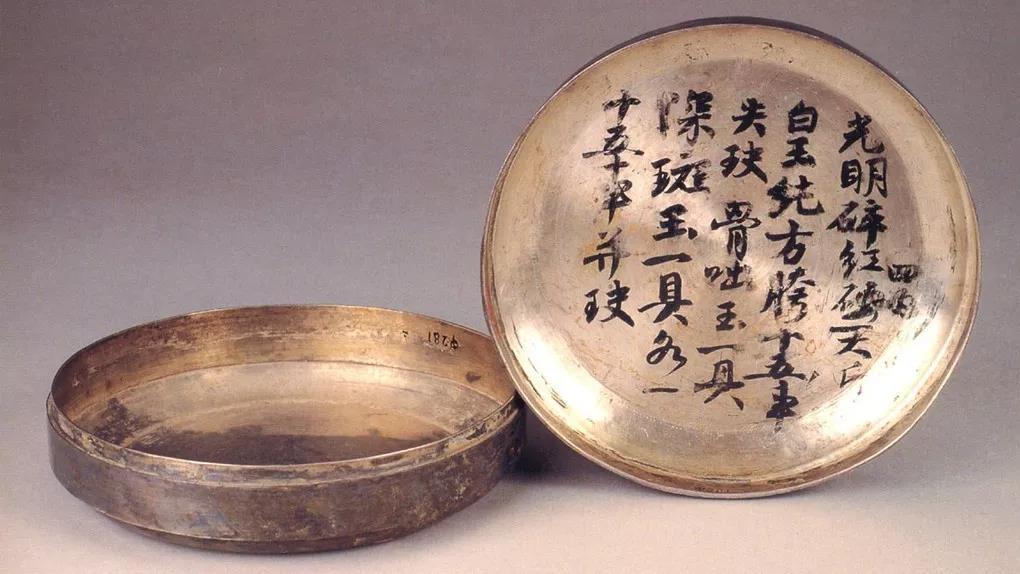 光明碎紅砂一大斤
四兩
白玉純方胯十五事
失玦 骨咄玉一具
深斑玉一具各一
十五事并玦